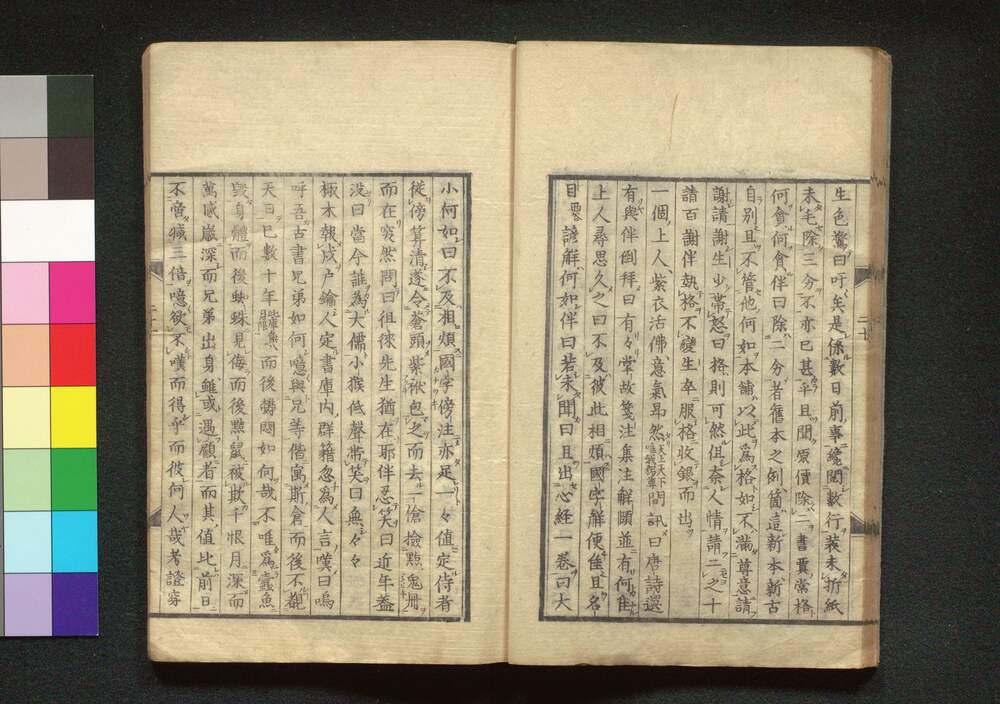 生色驚曰吁矣是係數日前事纔閲數行装未折紙
未毛除三分不亦已甚乎且聞原價除二書賈常格
何會何食伴曰除二分者舊本之例箇這新本新古
自別且不管他何如本舗以此為格如不滿尊意請
謝請謝生少帶怒曰格則可然但奈人情請二之十
請百謝伴執格不變生卒服格收銀而出
一個上人紫衣活佛意氣昂然天上天下唯我獨尊問訊曰唐詩選
有與伴倒拜曰有々掌故箋注集注解頤並有何隹
上人尋思久之曰不及彼此相煩國字解便隹且名
目要諺解何如伴曰若未聞曰且出心經一卷曰大
小何如曰不及相煩國字傍注亦足一々値定侍者
從傍算清遂令蒼頭紫袱包之而去一儈撿點鬼冊
而在突然問曰徂徠先生猶在耶伴忍笑曰近年蓋
沒曰當今誰為大儒小猴低聲帶笑曰無々々
柝木報戍戸鑰人定書庫内群籍忽為人言嘆曰嗚
呼吾古書兄弟如何噫與兄等偕寓斯倉而後不覩
天日已數十年而後欝悶如何哉不唯為蠹魚
毀身體而後蜘蛛見侮而後黠鼠被欺千恨月深而
萬感歳深而兄弟出身雖或遇顧者而其値比前日
不啻減三倍噫欲不嘆而得乎而彼何人哉考證穿
二十